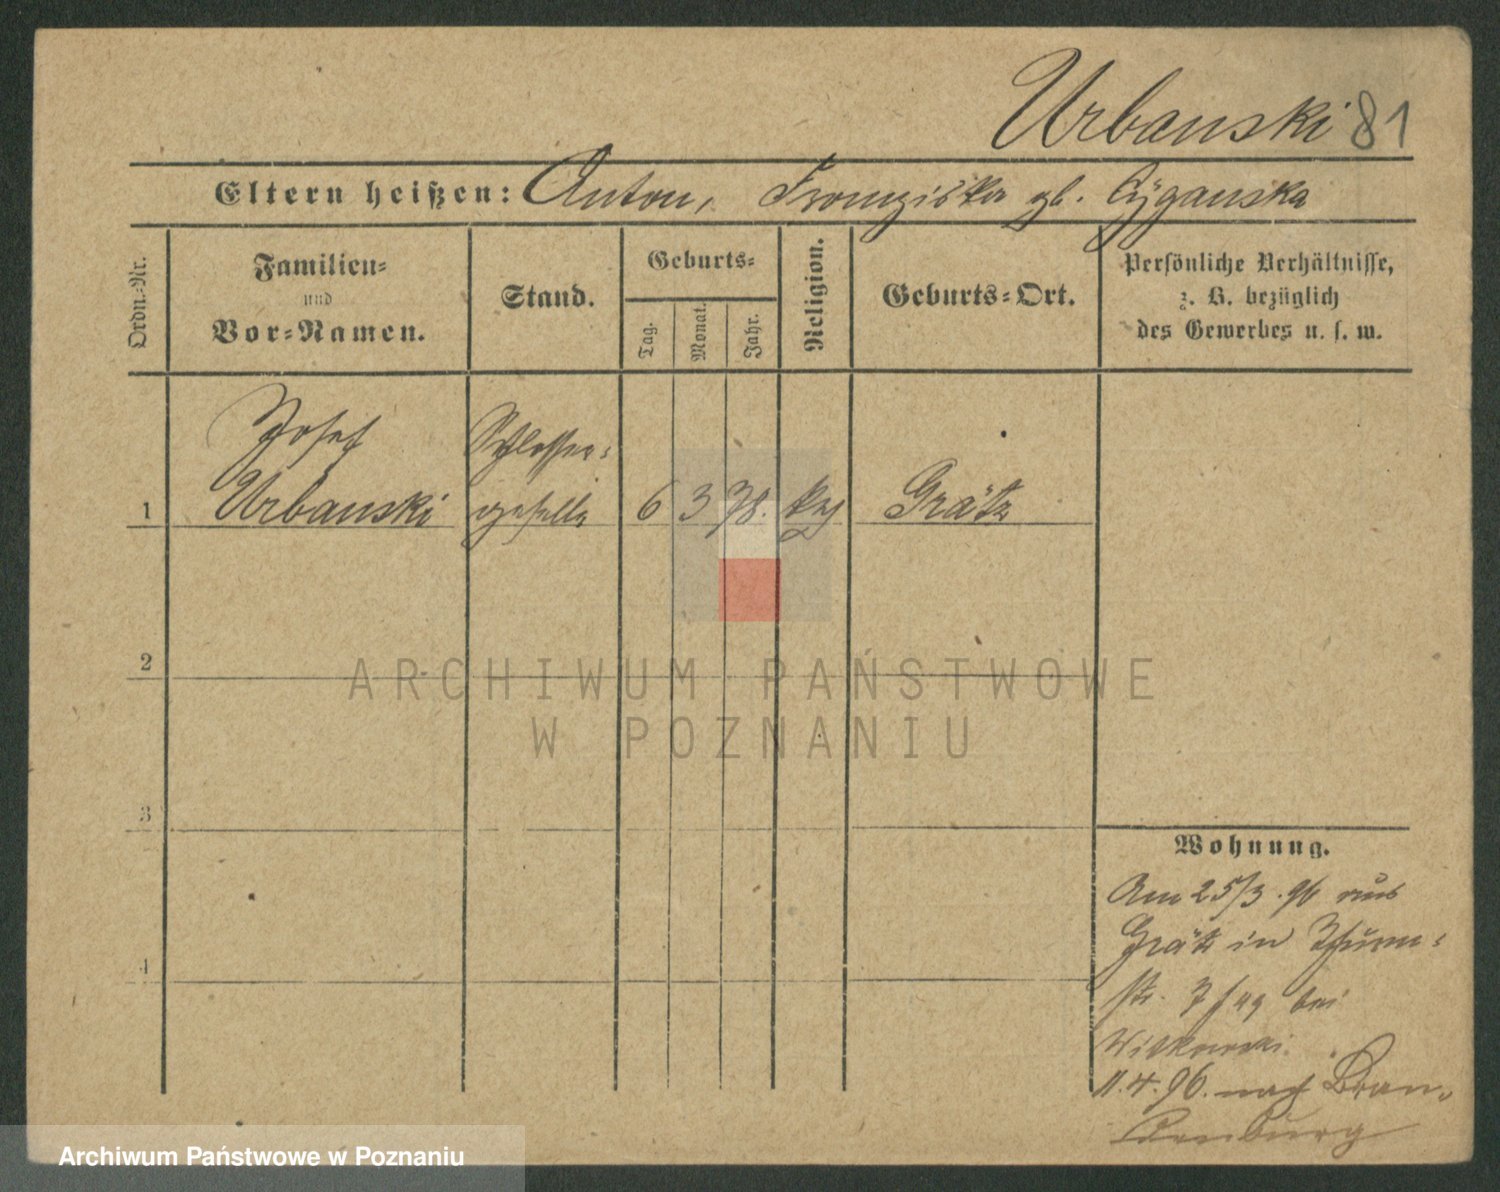 Urbanski 81
Eltern heißen: Anton, Franziska gb. Cyganska
Ordn.-Nr.
Familien-
und
Vor-Namen.
Stand.
Geburts-
Tag.
Monat.
Jahr.
Religion.
Geburts-Ort.
Persönliche Verhältnisse,
z. B. bezüglich
des Gewerbes u. s. w.
Josef
Urbanski
Schlosser-
geselle
1
6
3
78.
kath
Grätz
2
ARCHIWUM PAŃSTWOWE
W POZNANIU
3
4
Wohnung.
Am 25/3.96 aus
Grätz in Thurm-
str. 7 bei
Witkowski.
11.4.96. nach Bran-
denburg
Archiwum Państwowe w Poznaniu